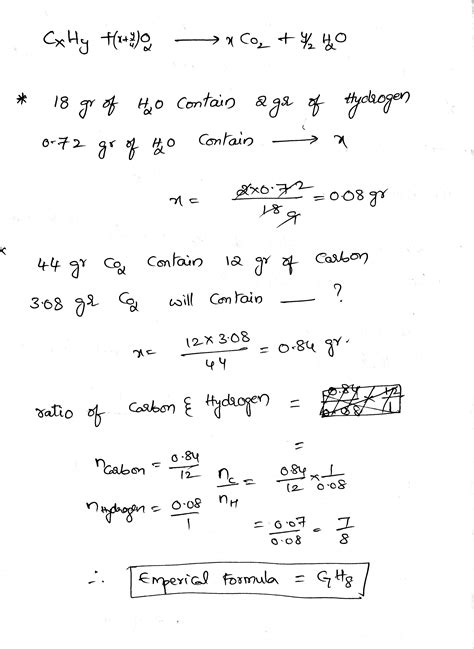 CxHy +(x+y/4)O2 ⟶ x CO2 + y/2 H2O
* 18 gr of H2O Contain 2 gr of Hydrogen
0.72 gr of H2O Contain ⟶ x
x = 2×0.72 / 18 9 = 0.08 gr
* 44 gr CO2 Contain 12 gr of Carbon
3.08 gr CO2 will Contain — ?
x = 12 × 3.08 / 44 = 0.84 gr.
ratio of Carbon & Hydrogen =
=
nCarbon = 0.84/12 nC/nH = 0.84/12 × 1/0.08
nHydrogen = 0.08/1
= 0.07/0.08 = 7/8
∴ Emperical Formula = C7H8